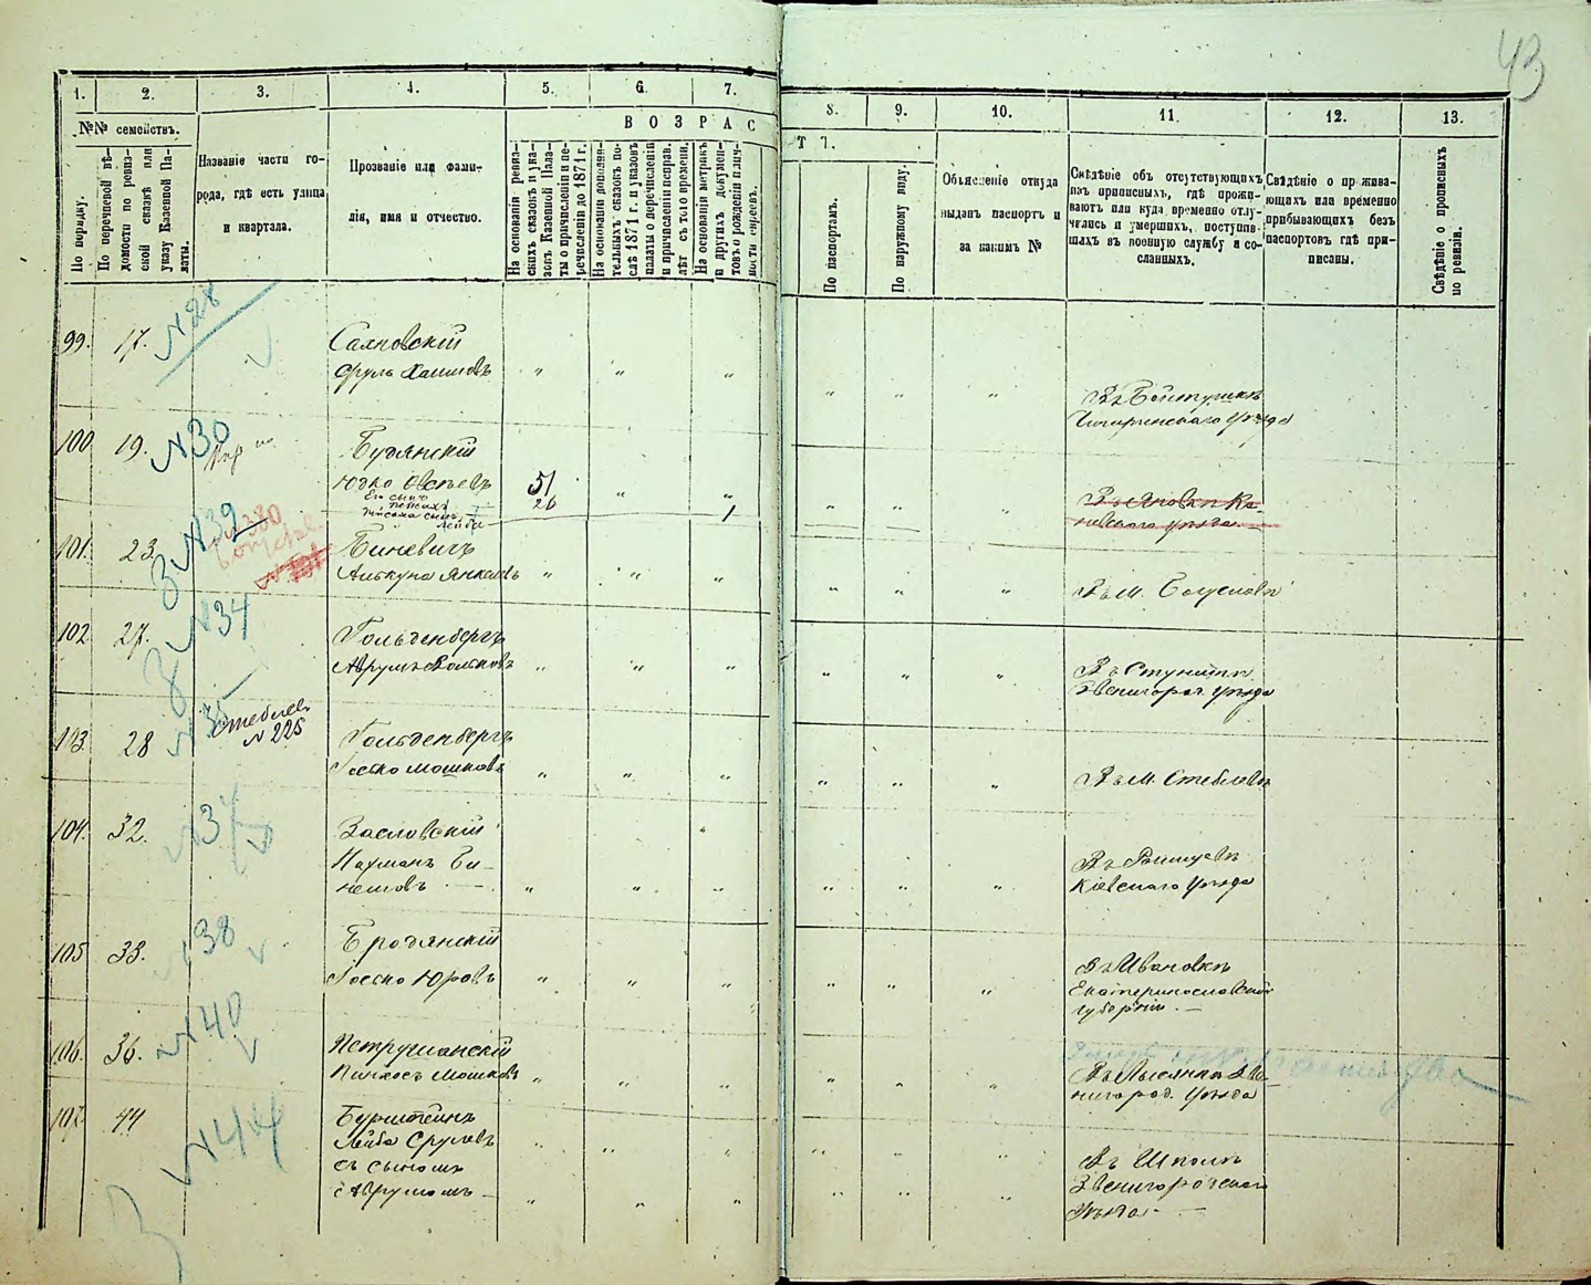 43
1.
2.
3.
4.
5.
6.
7.
8.
9.
10.
11.
12.
13.
№№ семействъ.
По порядку.
По перечневой вѣ-
домости по ревиз-
ской сказкѣ или
указу Казенной Па-
латы.
Названіе части го-
рода, гдѣ есть улица
и квартала.
Прозваніе или фами-
лія, имя и отчество.
ВОЗРАС
ТЪ.
На основаніи ревиз-
скихъ сказокъ и ука-
зовъ Казенной Пала-
ты о причисленіи и пе-
речисленіи до 1871 г.
На основаніи дополни-
тельныхъ сказокъ по-
слѣ 1871 г. и указовъ
палаты о перечисленіи
и причисленіи исправ.
лѣт съ того времени.
На основаніи метрикъ
и другихъ докумен-
товъ о рожденіи и лич-
ности евреевъ.
По паспортамъ.
По наружному виду.
Объясненіе откуда
выданъ паспортъ и
за какимъ №
Свѣдѣніе объ отсутствующихъ
изъ приписныхъ, гдѣ прожи-
ваютъ или куда временно отлу-
чились и умершихъ, поступив-
шихъ въ военную службу и со-
сланныхъ.
Свѣдѣніе о прожива-
ющихъ или временно
прибывающихъ безъ
паспортовъ гдѣ при-
писаны.
Свѣдѣніе о прописныхъ
по ревизіи.
99. 17. №28 Сахновскій
Сруль Хаимовъ " " " " " "
Чигиринскаго уѣзда
100 19. №30 Будянскій
Юдко Овсѣевъ 51 " " " " "
Его сынъ
Пейсахъ 26
Пейсаха сынъ
Лейба 1
Въ Яновкѣ Ка-
невскаго уѣзда.
101. 23. №32 №380 Биневичъ
Янкелевъ " " " " " "
Въ м. Богуславѣ
102 27. №34 Гольденбергъ
Аврумъ Волковъ " " " " " "
Звенигород. уѣзда
103. 28 №35 Стеблевъ
№ 225
Гольденбергъ
Іосько Мошковъ " " " " " "
Въ м. Стеблевѣ
104. 32. №37 Заславскій
Нахманъ Би-
немовъ " " " " " "
Кіевскаго уѣзда
105 33. №38 Бродянскій
Іосько Юровъ " " " " " "
Въ Ивановкѣ
Екатеринославской
губерніи.
106. 36. №40
Пинхосъ Мошковъ " " " " " "
Въ Лысянкѣ Зве-
нигород. уѣзда
107. 44 №44 Бурштейнъ
Лейба Срулевъ " " " " " "
съ сыномъ
Аврумомъ " " " " " "
Въ Шполѣ
Звенигородскаго
уѣзда.